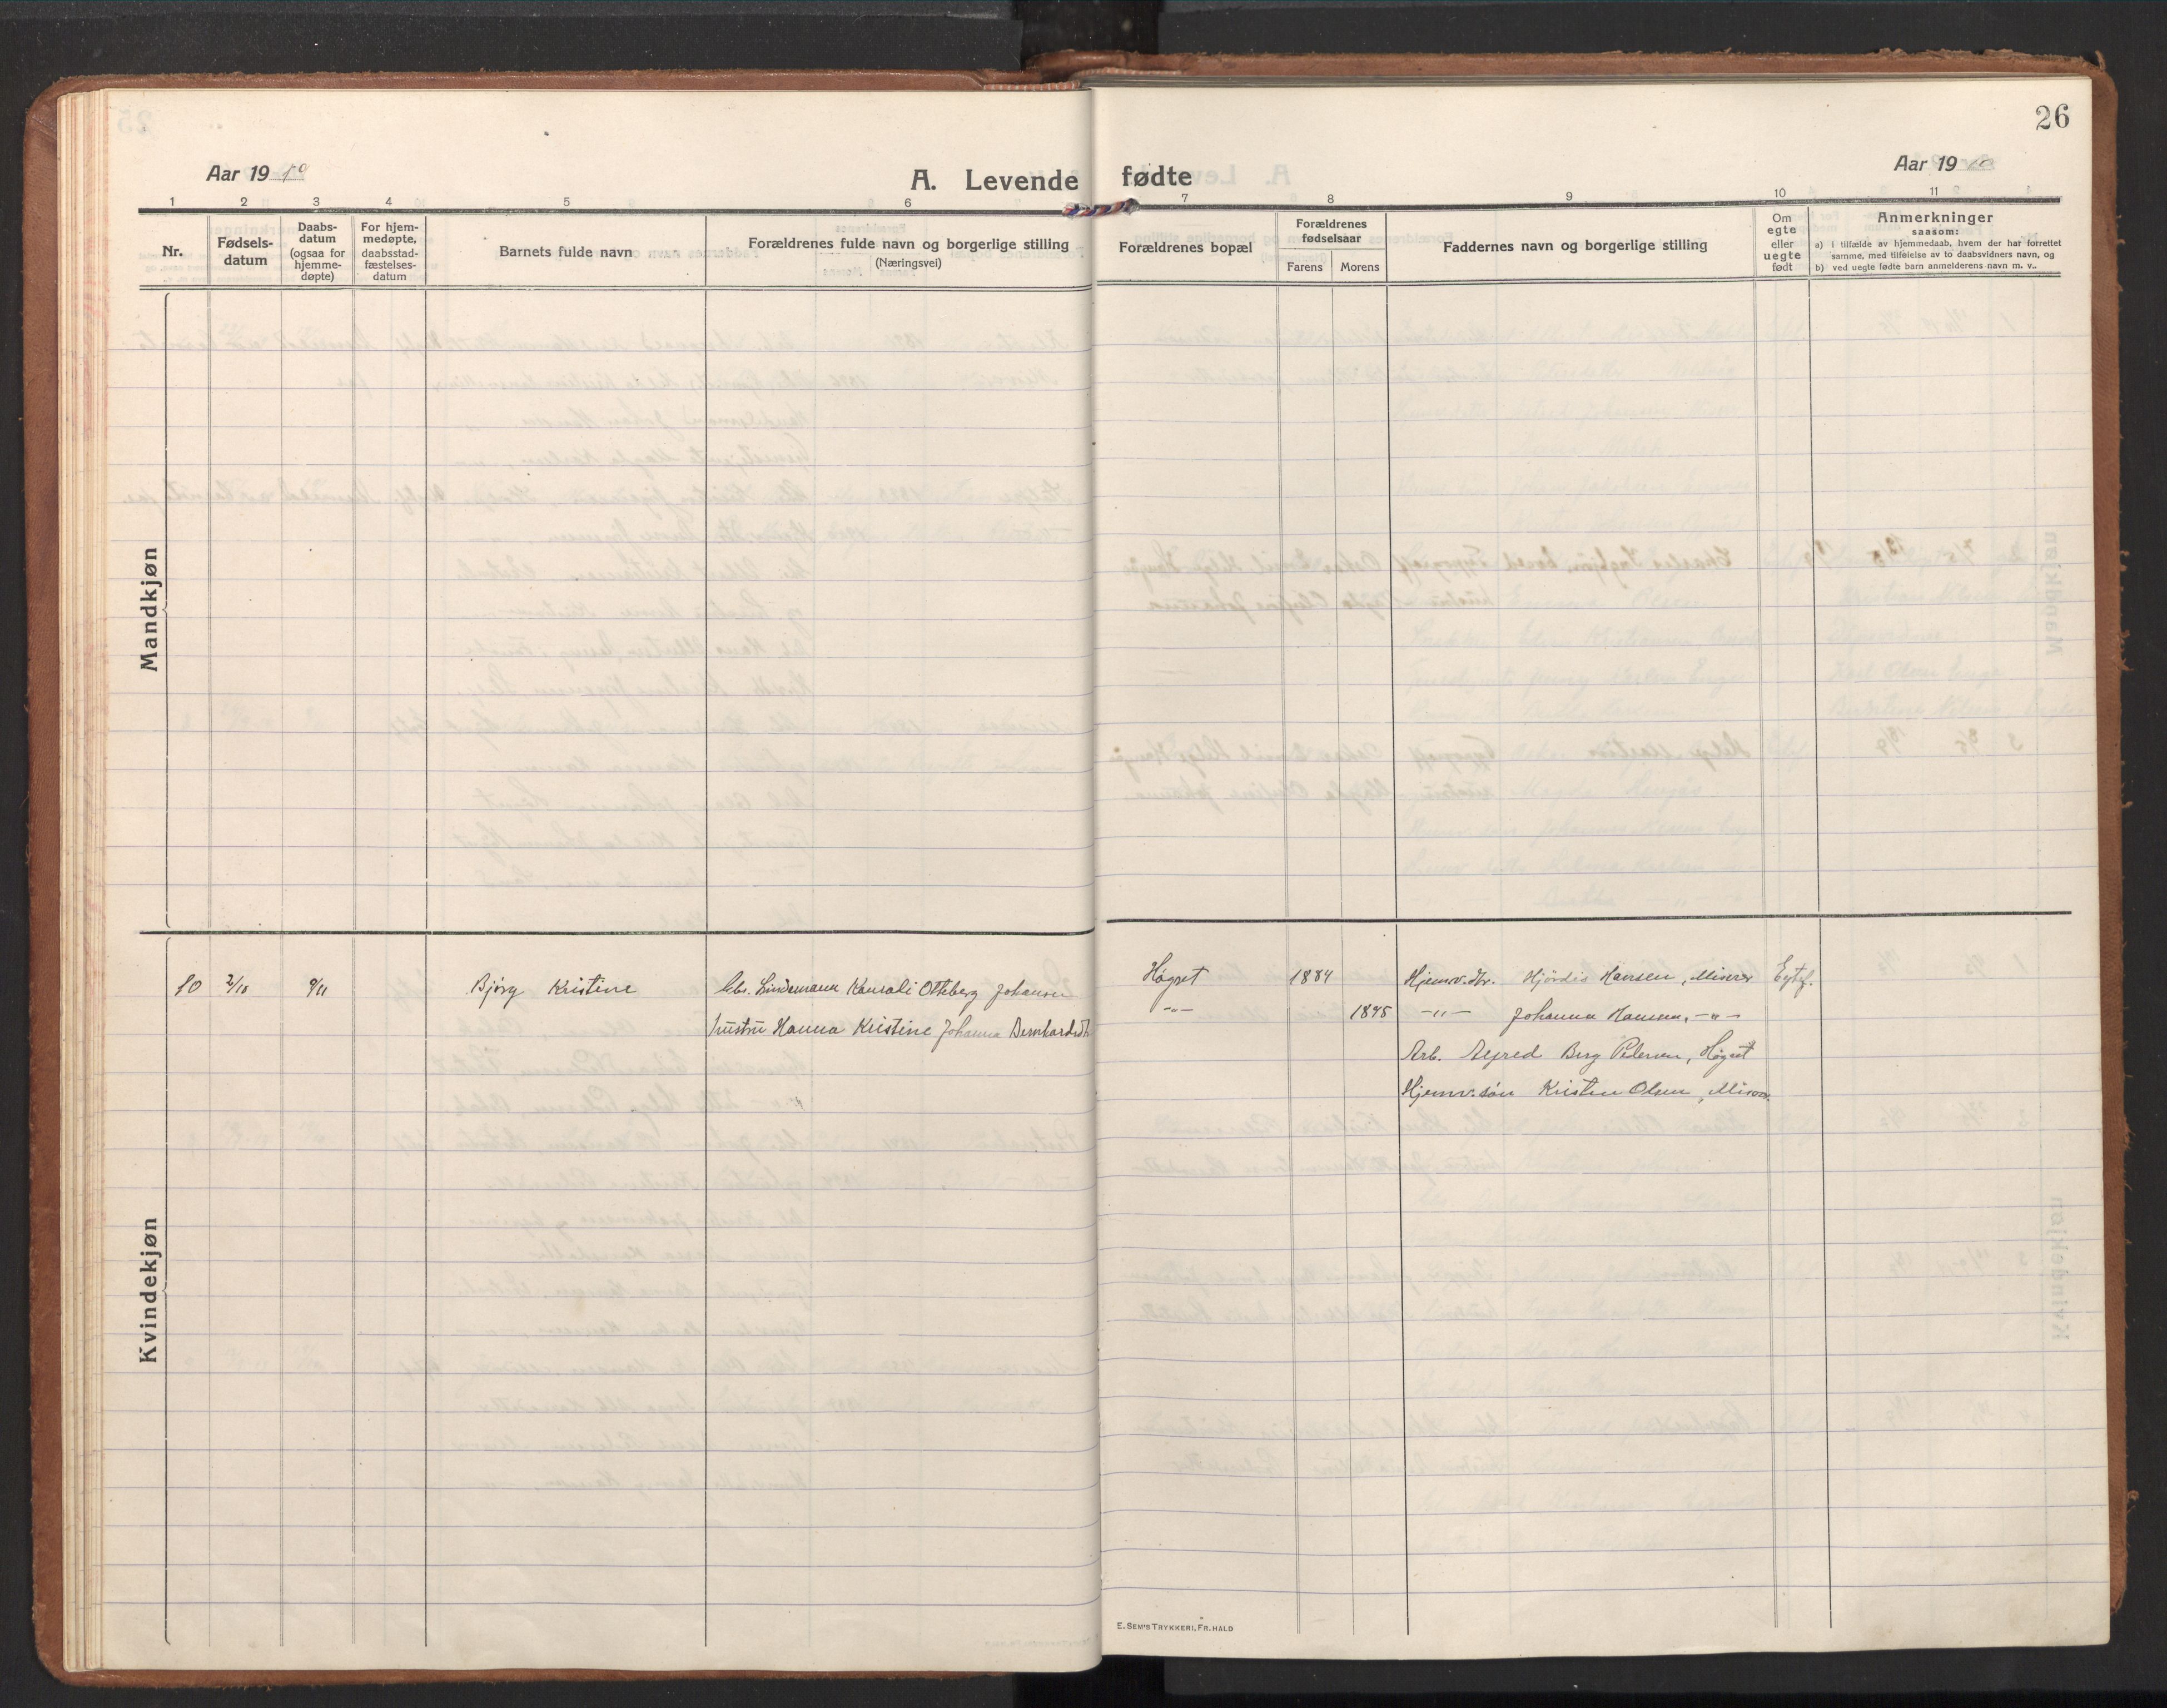 26
Aar 19 10
A. Levende fødte
Aar 19 10
1 2 3 4 5 6 7 8 9 10 11
Nr.
Fødsels-
datum
Daabs-
datum
(ogsaa for
hjemme-
døpte)
For hjem-
medøpte,
daabsstad-
fæstelses-
datum
Barnets fulde navn
Forældrenes fulde navn og borgerlige stilling
(Næringsvei)
Forældrenes bopæl
Forældrenes
fødselsaar
Farens Morens
Faddernes navn og borgerlige stilling
Om
egte
eller
uegte
født
Anmerkninger
saasom:
a) i tilfælde av hjemmedaab, hvem der har forrettet
samme, med tilføielse av to daabsvidners navn, og
b) ved uegte fødte barn anmelderens navn m. v..
Mandkjøn
Kvindekjøn
10 2/10 9/11 Bjørg Kristine Arb. Lindemann Konrali Otteberg Johansen Høgset 1884 Hjemv.dtr. Hjördis Hansen, Misvær Egtef.
hustru Hanna Kristine Johanna Bernhardsdtr -"- 1895 -"- Johanna Hansen, -"-
Arb. Alfred Berg Pedersen, Høgset
Hjemv. søn Kristen Olsen, Misvær.
E. SEM'S TRYKKERI, FR.HALD